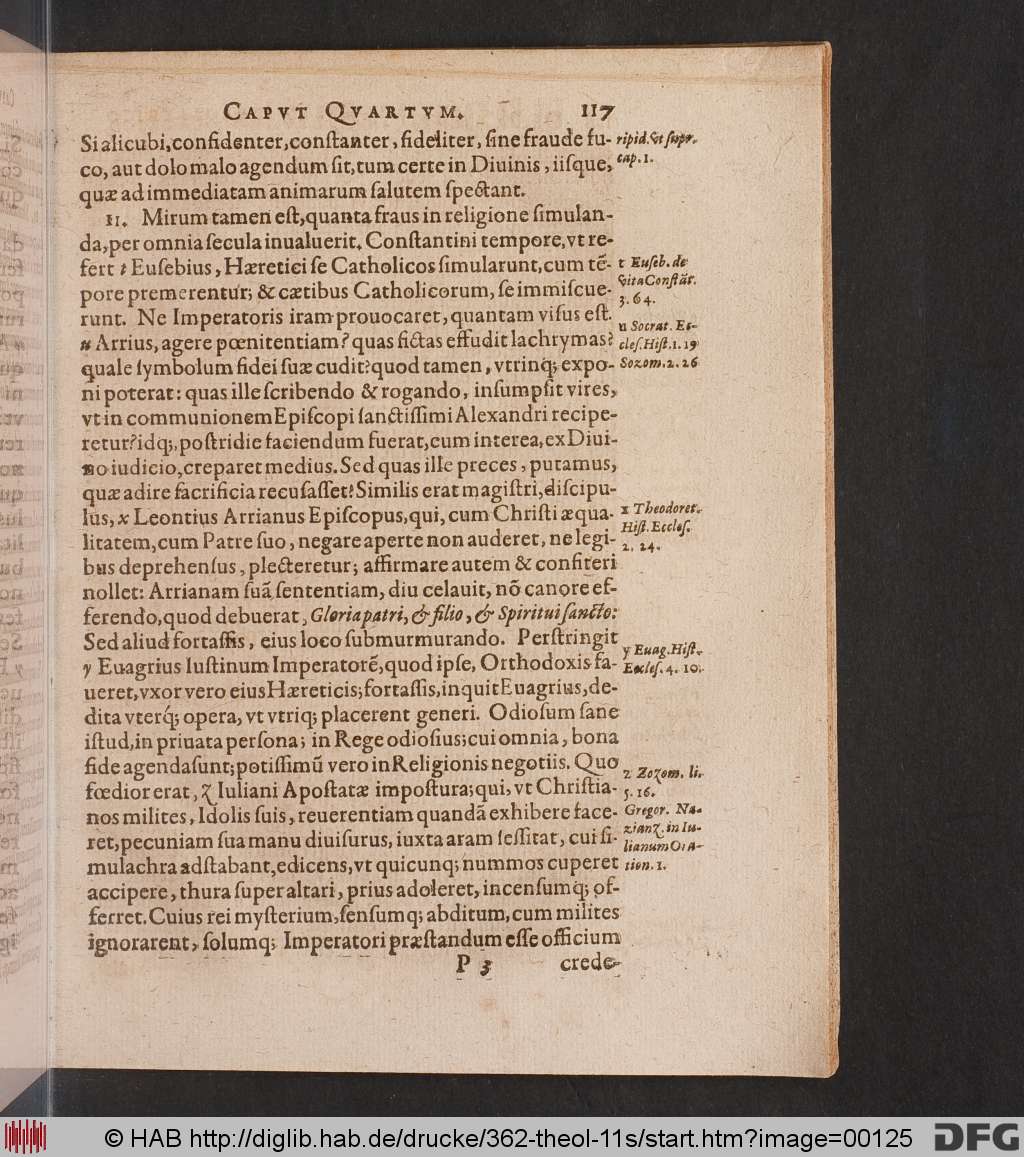 CAPVT QVARTVM. 117
Si alicubi, confidenter, conſtanter, fideliter, ſine fraude fu-
co, aut dolo malo agendum ſit, tum certe in Diuinis, iiſque,
quæ ad immediatam animarum ſalutem ſpectant.
11. Mirum tamen eſt, quanta fraus in religione ſimulan-
da, per omnia ſecula inualuerit. Conſtantini tempore, vt re-
fert t Euſebius, Hæretici ſe Catholicos ſimularunt, cum tẽ-
pore premerentur; & cætibus Catholicorum, ſe immiſcue-
runt. Ne Imperatoris iram prouocaret, quantam viſus eſt.
u Arrius, agere pœnitentiam? quas fictas effudit lachrymas?
quale ſymbolum fidei ſuæ cudit? quod tamen, vtrinq; expo-
ni poterat: quas ille ſcribendo & rogando, inſumpſit vires,
vt in communionem Epiſcopi ſanctiſſimi Alexandri recipe-
retur? idq;, poſtridie faciendum fuerat, cum interea, ex Diui-
no iudicio, creparet medius. Sed quas ille preces, putamus,
quæ adire ſacrificia recuſaſſet? Similis erat magiſtri, diſcipu-
lus, x Leontius Arrianus Epiſcopus, qui, cum Chriſti æqua-
litatem, cum Patre ſuo, negare aperte non auderet, ne legi-
bus deprehenſus, plecteretur; affirmare autem & confiteri
nollet: Arrianam ſuã ſententiam, diu celauit, nõ canore ef-
ferendo, quod debuerat, Gloria patri, & filio, & Spiritui ſancto:
Sed aliud fortaſſis, eius loco ſubmurmurando. Perſtringit
y Euagrius Iuſtinum Imperatorẽ, quod ipſe, Orthodoxis fa-
ueret, vxor vero eius Hæreticis; fortaſſis, inquit Euagrius, de-
dita vterq́; opera, vt vtriq; placerent generi. Odioſum ſane
iſtud, in priuata perſona; in Rege odioſius; cui omnia, bona
fide agenda ſunt; potiſſimũ vero in Religionis negotiis. Quo
fœdior erat, z Iuliani Apoſtatæ impoſtura; qui, vt Chriſtia-
nos milites, Idolis ſuis, reuerentiam quandã exhibere face-
ret, pecuniam ſua manu diuiſurus, iuxta aram ſeſſitat, cui ſi-
mulachra adſtabant, edicens, vt quicunq; nummos cuperet
accipere, thura ſuper altari, prius adoleret, incenſumq; of-
ferret. Cuius rei myſterium, ſenſumq; abditum, cum milites
ignorarent, ſolumq; Imperatori præſtandum eſſe officium
P 3 crede-
ripid. & ſupr.
cap. 1.
t Euſeb. de
vita Conſtãt.
3. 64.
u Socrat. Ec-
cleſ. Hiſt. 1. 19
Sozom. 2. 26
x Theodoret.
Hiſt. Eccleſ.
2. 24.
y Euag. Hiſt.
Eccleſ. 4. 10.
z Zozom. li.
5. 16.
Gregor. Na-
zianz. in Iu-
lianum Ora-
tion. 1.
© HAB http://diglib.hab.de/drucke/362-theol-11s/start.htm?image=00125
DFG